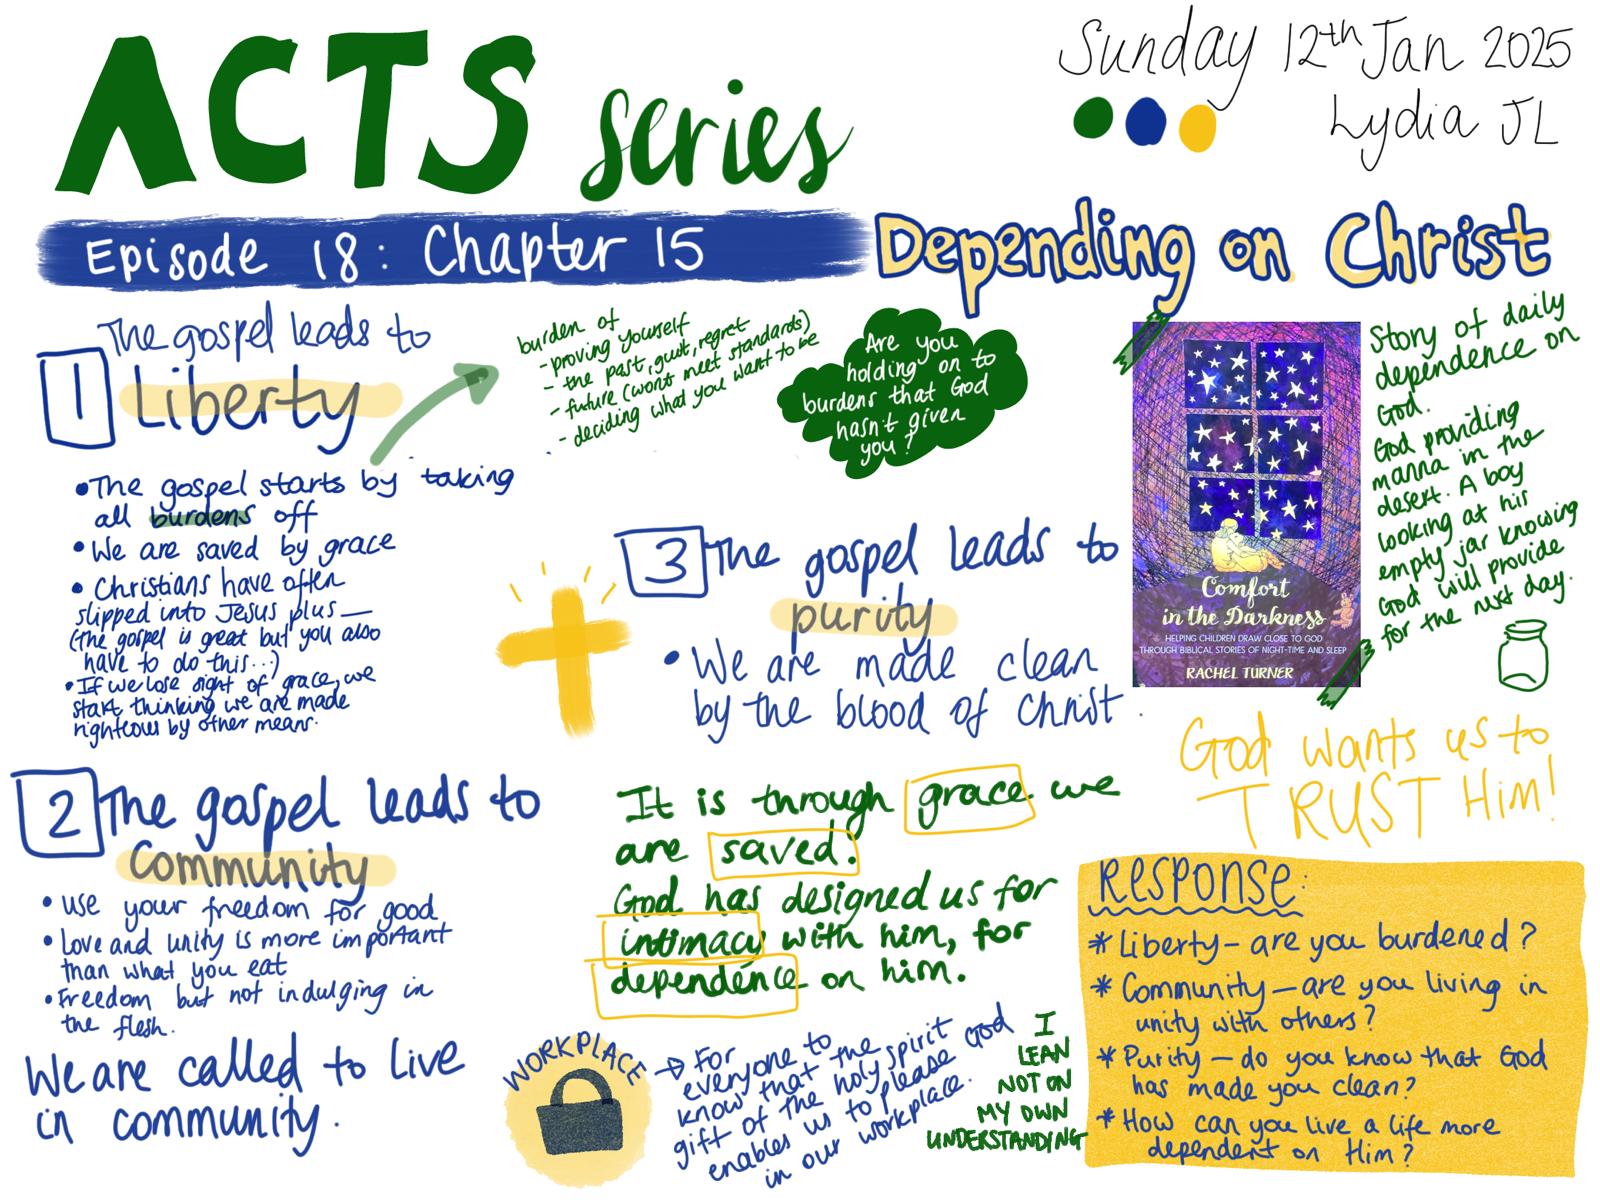 ACTS series
Sunday 12th Jan 2025
Lydia JL
Episode 18: Chapter 15
Depending on Christ
1
The gospel leads to
Liberty
burden of
- proving yourself
- the past, guilt, regret
- future (wont meet standards)
- deciding what you want to be
Are you
holding on to
burdens that God
hasn't given
you?
• The gospel starts by taking
all burdens off
• We are saved by grace
• Christians have often
slipped into Jesus plus—
(The gospel is great but you also
have to do this...)
• If we lose sight of grace, we
start thinking we are made
righteous by other means.
2
The gospel leads to
Community
• use your freedom for good
• Love and unity is more important
than what you eat
• Freedom but not indulging in
the flesh.
We are called to live
in community.
3
The gospel leads to
purity
• We are made clean
by the blood of Christ.
It is through grace we
are saved.
God has designed us for
intimacy with him, for
dependence on him.
WORKPLACE
→ For
everyone to
know that the
gift of the holy spirit
enables us to please God
in our workplace.
I
LEAN
NOT ON
MY OWN
UNDERSTANDING
Comfort
in the Darkness
HELPING CHILDREN DRAW CLOSE TO GOD
THROUGH BIBLICAL STORIES OF NIGHT-TIME AND SLEEP
RACHEL TURNER
Story of daily
dependence on
God.
God providing
manna in the
desert. A boy
looking at his
empty jar knowing
God will provide
for the next day.
God wants us to
TRUST Him!
RESPONSE:
* Liberty – are you burdened?
* Community – are you living in
unity with others?
* Purity – do you know that God
has made you clean?
* How can you live a life more
dependent on Him?